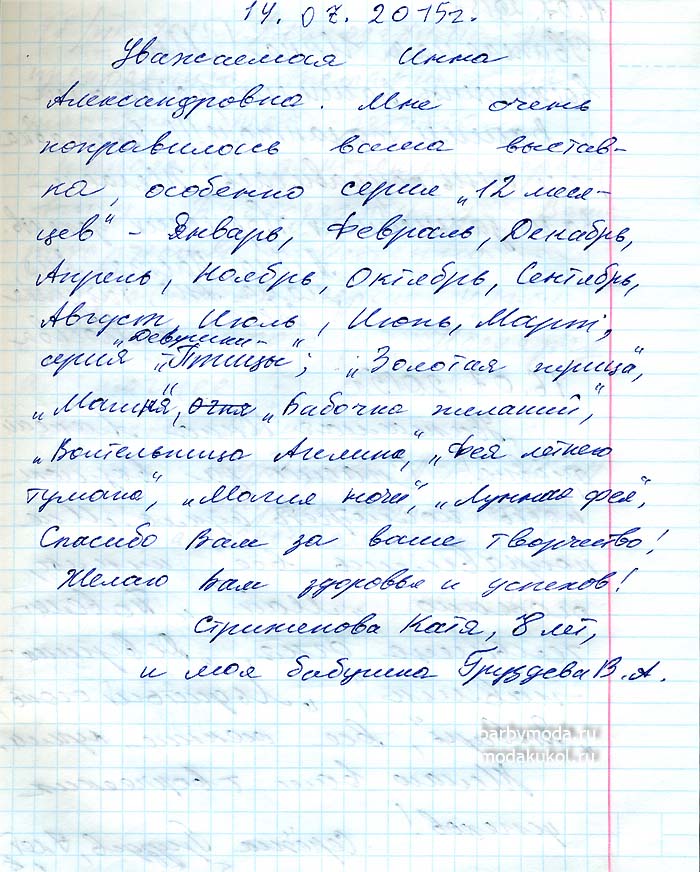 14. 07. 2015г.
Уважаемая Инна
Александровна. Мне очень
понравилась ваша выстав-
ка, особенно серия „12 меся-
цев“ - Январь, Февраль, Декабрь,
Апрель, Ноябрь, Октябрь, Сентябрь,
Август, Июль, Июнь, Март,
серия „Девушки-Птицы“; „Золотая жрица“,
„Магия“, огня „Бабочка желаний“,
„Воительница Ангелина“, „Фея летнего
тумана“, „Магия ночи“, „Лунная фея“,
Спасибо Вам за ваше творчество!
Желаю Вам здоровья и успехов!
Стриженова Катя, 8 лет,
и моя бабушка Груздева В.А.
barbymoda.ru
modakukol.ru